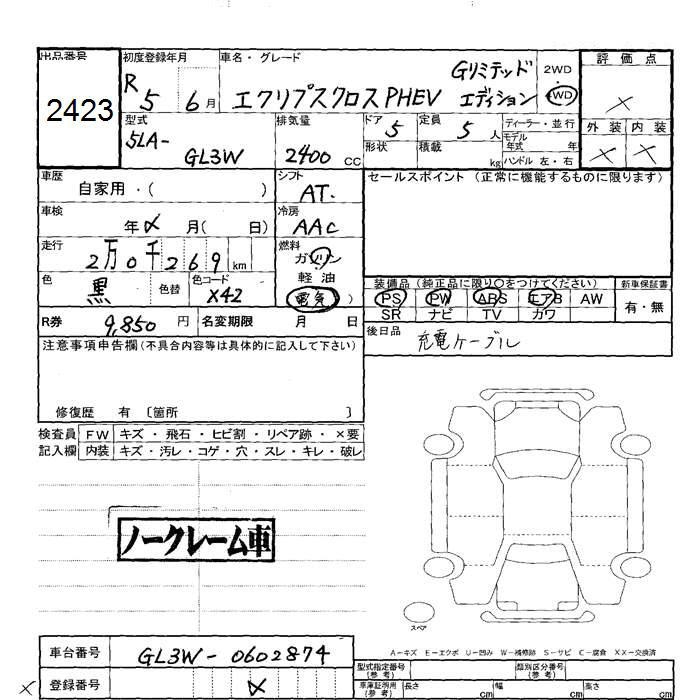 出品番号 2423
初度登録年月 R5 6月
車名・グレード エクリプスクロスPHEV Gリミテッド エディション
2WD 4WD
評価点 ×
外装 内装
× ×
型式 5LA- GL3W
排気量 2400 CC
ドア 5 定員 5人
形状 積載 kg
ディーラー・並行
モデル年式 年
ハンドル 左・右
車歴 自家用・( )
シフト AT.
車検 年 × 月( 日)
冷房 AAC
走行 2万0千269km
燃料 ガソリン
軽油
電気 )
色 黒 色替 色コード X42
セールスポイント (正常に機能するものに限ります)
装備品 (純正品に限り○をつけてください)
PS PW ABS エアB AW
SR ナビ TV カワ
新車保証書
有・無
R券 9,850円 名変期限 月 日
後日品 充電ケーブル
注意事項申告欄(不具合内容等は具体的に記入して下さい)
修復歴 有 〔箇所 〕
検査員 FW キズ・飛石・ヒビ割・リペア跡・×要
記入欄 内装 キズ・汚レ・コゲ・穴・スレ・キレ・破レ
ノークレーム車
スペア
A-キズ E-エクボ U-凹み W-補修跡 S-サビ C-腐食 XX-交換済
車台番号 GL3W-0602874
× 登録番号 ×
型式指定番号
(参考)
類別区分番号
(参考)
車庫証明用
(参考)
長さ cm 幅 cm 高さ cm